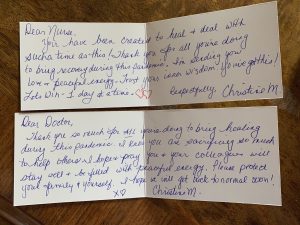 Dear Nurse,
You have been created to heal & deal with
such a time as this! Thank you for all you're doing
to bring recovery during this pandemic. I'm sending you
love & peaceful energy. Trust your inner wisdom. You've got this!
Let's Win - 1 day at a time.
Respectfully, Christine M.
Dear Doctor,
Thank you so much for all you're doing to bring healing
during this pandemic. I know you are sacrificing so much
to help others. I hope & pray you & your colleagues will
stay well & be filled with peaceful energy. Please protect
your family & yourself. I hope it will get back to normal soon!
X♡ Christine M.